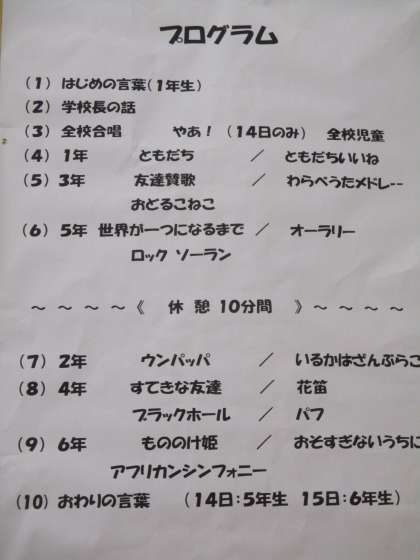 プログラム
(1) はじめの言葉(1年生)
(2) 学校長の話
(3) 全校合唱 やあ! (14日のみ) 全校児童
(4) 1年 ともだち / ともだちいいね
(5) 3年 友達賛歌 / わらべうたメドレー-
おどるこねこ
(6) 5年 世界が一つになるまで / オーラリー
ロック ソーラン
～ ～ ～ ～ 《 休 憩 10分間 》 ～ ～ ～ ～
(7) 2年 ウンパッパ / いるかはざんぶらこ
(8) 4年 すてきな友達 / 花笛
ブラックホール / パフ
(9) 6年 もののけ姫 / おそすぎないうちに
アフリカンシンフォニー
(10) おわりの言葉 (14日:5年生 15日:6年生)